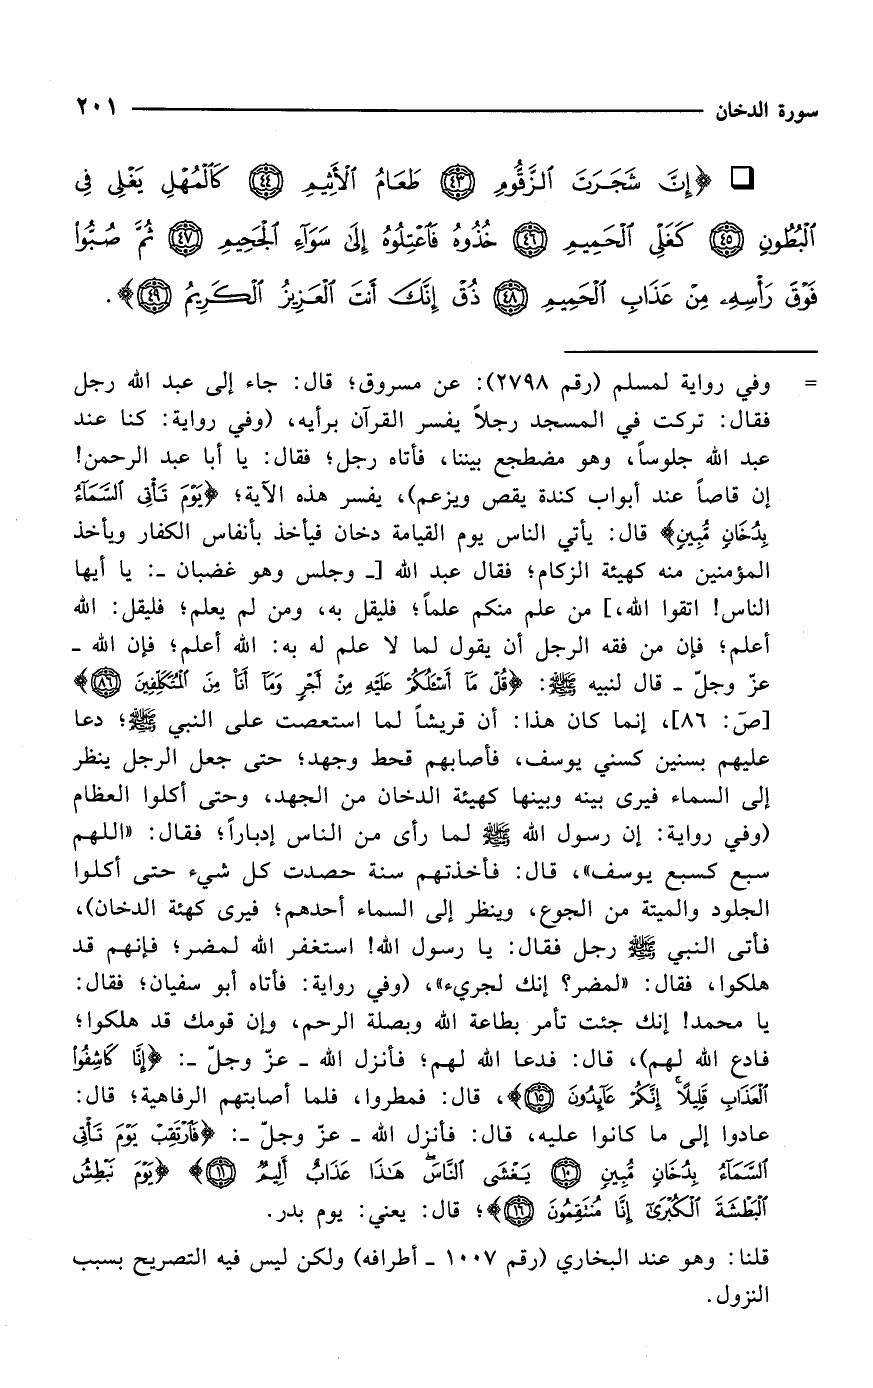 سورة الدخان ٢٠١
□ ﴿إِنَّ شَجَرَتَ ٱلزَّقُّومِ ٤٣ طَعَامُ ٱلْأَثِيمِ ٤٤ كَٱلْمُهْلِ يَغْلِى فِى
ٱلْبُطُونِ ٤٥ كَغَلْىِ ٱلْحَمِيمِ ٤٦ خُذُوهُ فَٱعْتِلُوهُ إِلَىٰ سَوَآءِ ٱلْجَحِيمِ ٤٧ ثُمَّ صُبُّوا۟
فَوْقَ رَأْسِهِۦ مِنْ عَذَابِ ٱلْحَمِيمِ ٤٨ ذُقْ إِنَّكَ أَنتَ ٱلْعَزِيزُ ٱلْكَرِيمُ ٤٩﴾.
= وفي رواية لمسلم (رقم ٢٧٩٨): عن مسروق؛ قال: جاء إلى عبد الله رجل
فقال: تركت في المسجد رجلاً يفسر القرآن برأيه، (وفي رواية: كنا عند
عبد الله جلوساً، وهو مضطجع بيننا، فأتاه رجل؛ فقال: يا أبا عبد الرحمن!
إن قاصاً عند أبواب كندة يقص ويزعم)، يفسر هذه الآية؛ ﴿يَوْمَ تَأْتِى ٱلسَّمَآءُ
بِدُخَانٍ مُّبِينٍ﴾ قال: يأتي الناس يوم القيامة دخان فيأخذ بأنفاس الكفار ويأخذ
المؤمنين منه كهيئة الزكام؛ فقال عبد الله [ـ وجلس وهو غضبان ـ: يا أيها
الناس! اتقوا الله،] من علم منكم علماً؛ فليقل به، ومن لم يعلم؛ فليقل: الله
أعلم؛ فإن من فقه الرجل أن يقول لما لا علم له به: الله أعلم؛ فإن الله ـ
عزّ وجلّ ـ قال لنبيه ﷺ: ﴿قُلْ مَآ أَسْـَٔلُكُمْ عَلَيْهِ مِنْ أَجْرٍ وَمَآ أَنَا۠ مِنَ ٱلْمُتَكَلِّفِينَ ٨٦﴾
[صَ: ٨٦]، إنما كان هذا: أن قريشاً لما استعصت على النبي ﷺ؛ دعا
عليهم بسنين كسني يوسف، فأصابهم قحط وجهد؛ حتى جعل الرجل ينظر
إلى السماء فيرى بينه وبينها كهيئة الدخان من الجهد، وحتى أكلوا العظام
(وفي رواية: إن رسول الله ﷺ لما رأى من الناس إدباراً؛ فقال: «اللهم
سبع كسبع يوسف»، قال: فأخذتهم سنة حصدت كل شيء حتى أكلوا
الجلود والميتة من الجوع، وينظر إلى السماء أحدهم؛ فيرى كهئة الدخان)،
فأتى النبي ﷺ رجل فقال: يا رسول الله! استغفر الله لمضر؛ فإنهم قد
هلكوا، فقال: «لمضر؟ إنك لجريء»، (وفي رواية: فأتاه أبو سفيان؛ فقال:
يا محمد! إنك جئت تأمر بطاعة الله وبصلة الرحم، وإن قومك قد هلكوا؛
فادع الله لهم)، قال: فدعا الله لهم؛ فأنزل الله ـ عزّ وجلّ ـ: ﴿إِنَّا كَاشِفُوا۟
ٱلْعَذَابِ قَلِيلًا ۚ إِنَّكُمْ عَآئِدُونَ ١٥﴾، قال: فمطروا، فلما أصابتهم الرفاهية؛ قال:
عادوا إلى ما كانوا عليه، قال: فأنزل الله ـ عزّ وجلّ ـ: ﴿فَٱرْتَقِبْ يَوْمَ تَأْتِى
ٱلسَّمَآءُ بِدُخَانٍ مُّبِينٍ ١٠ يَغْشَى ٱلنَّاسَ ۖ هَـٰذَا عَذَابٌ أَلِيمٌ ١١﴾ ﴿يَوْمَ نَبْطِشُ
ٱلْبَطْشَةَ ٱلْكُبْرَىٰٓ إِنَّا مُنتَقِمُونَ ١٦﴾؛ قال: يعني: يوم بدر.
قلنا: وهو عند البخاري (رقم ١٠٠٧ ـ أطرافه) ولكن ليس فيه التصريح بسبب
النزول.